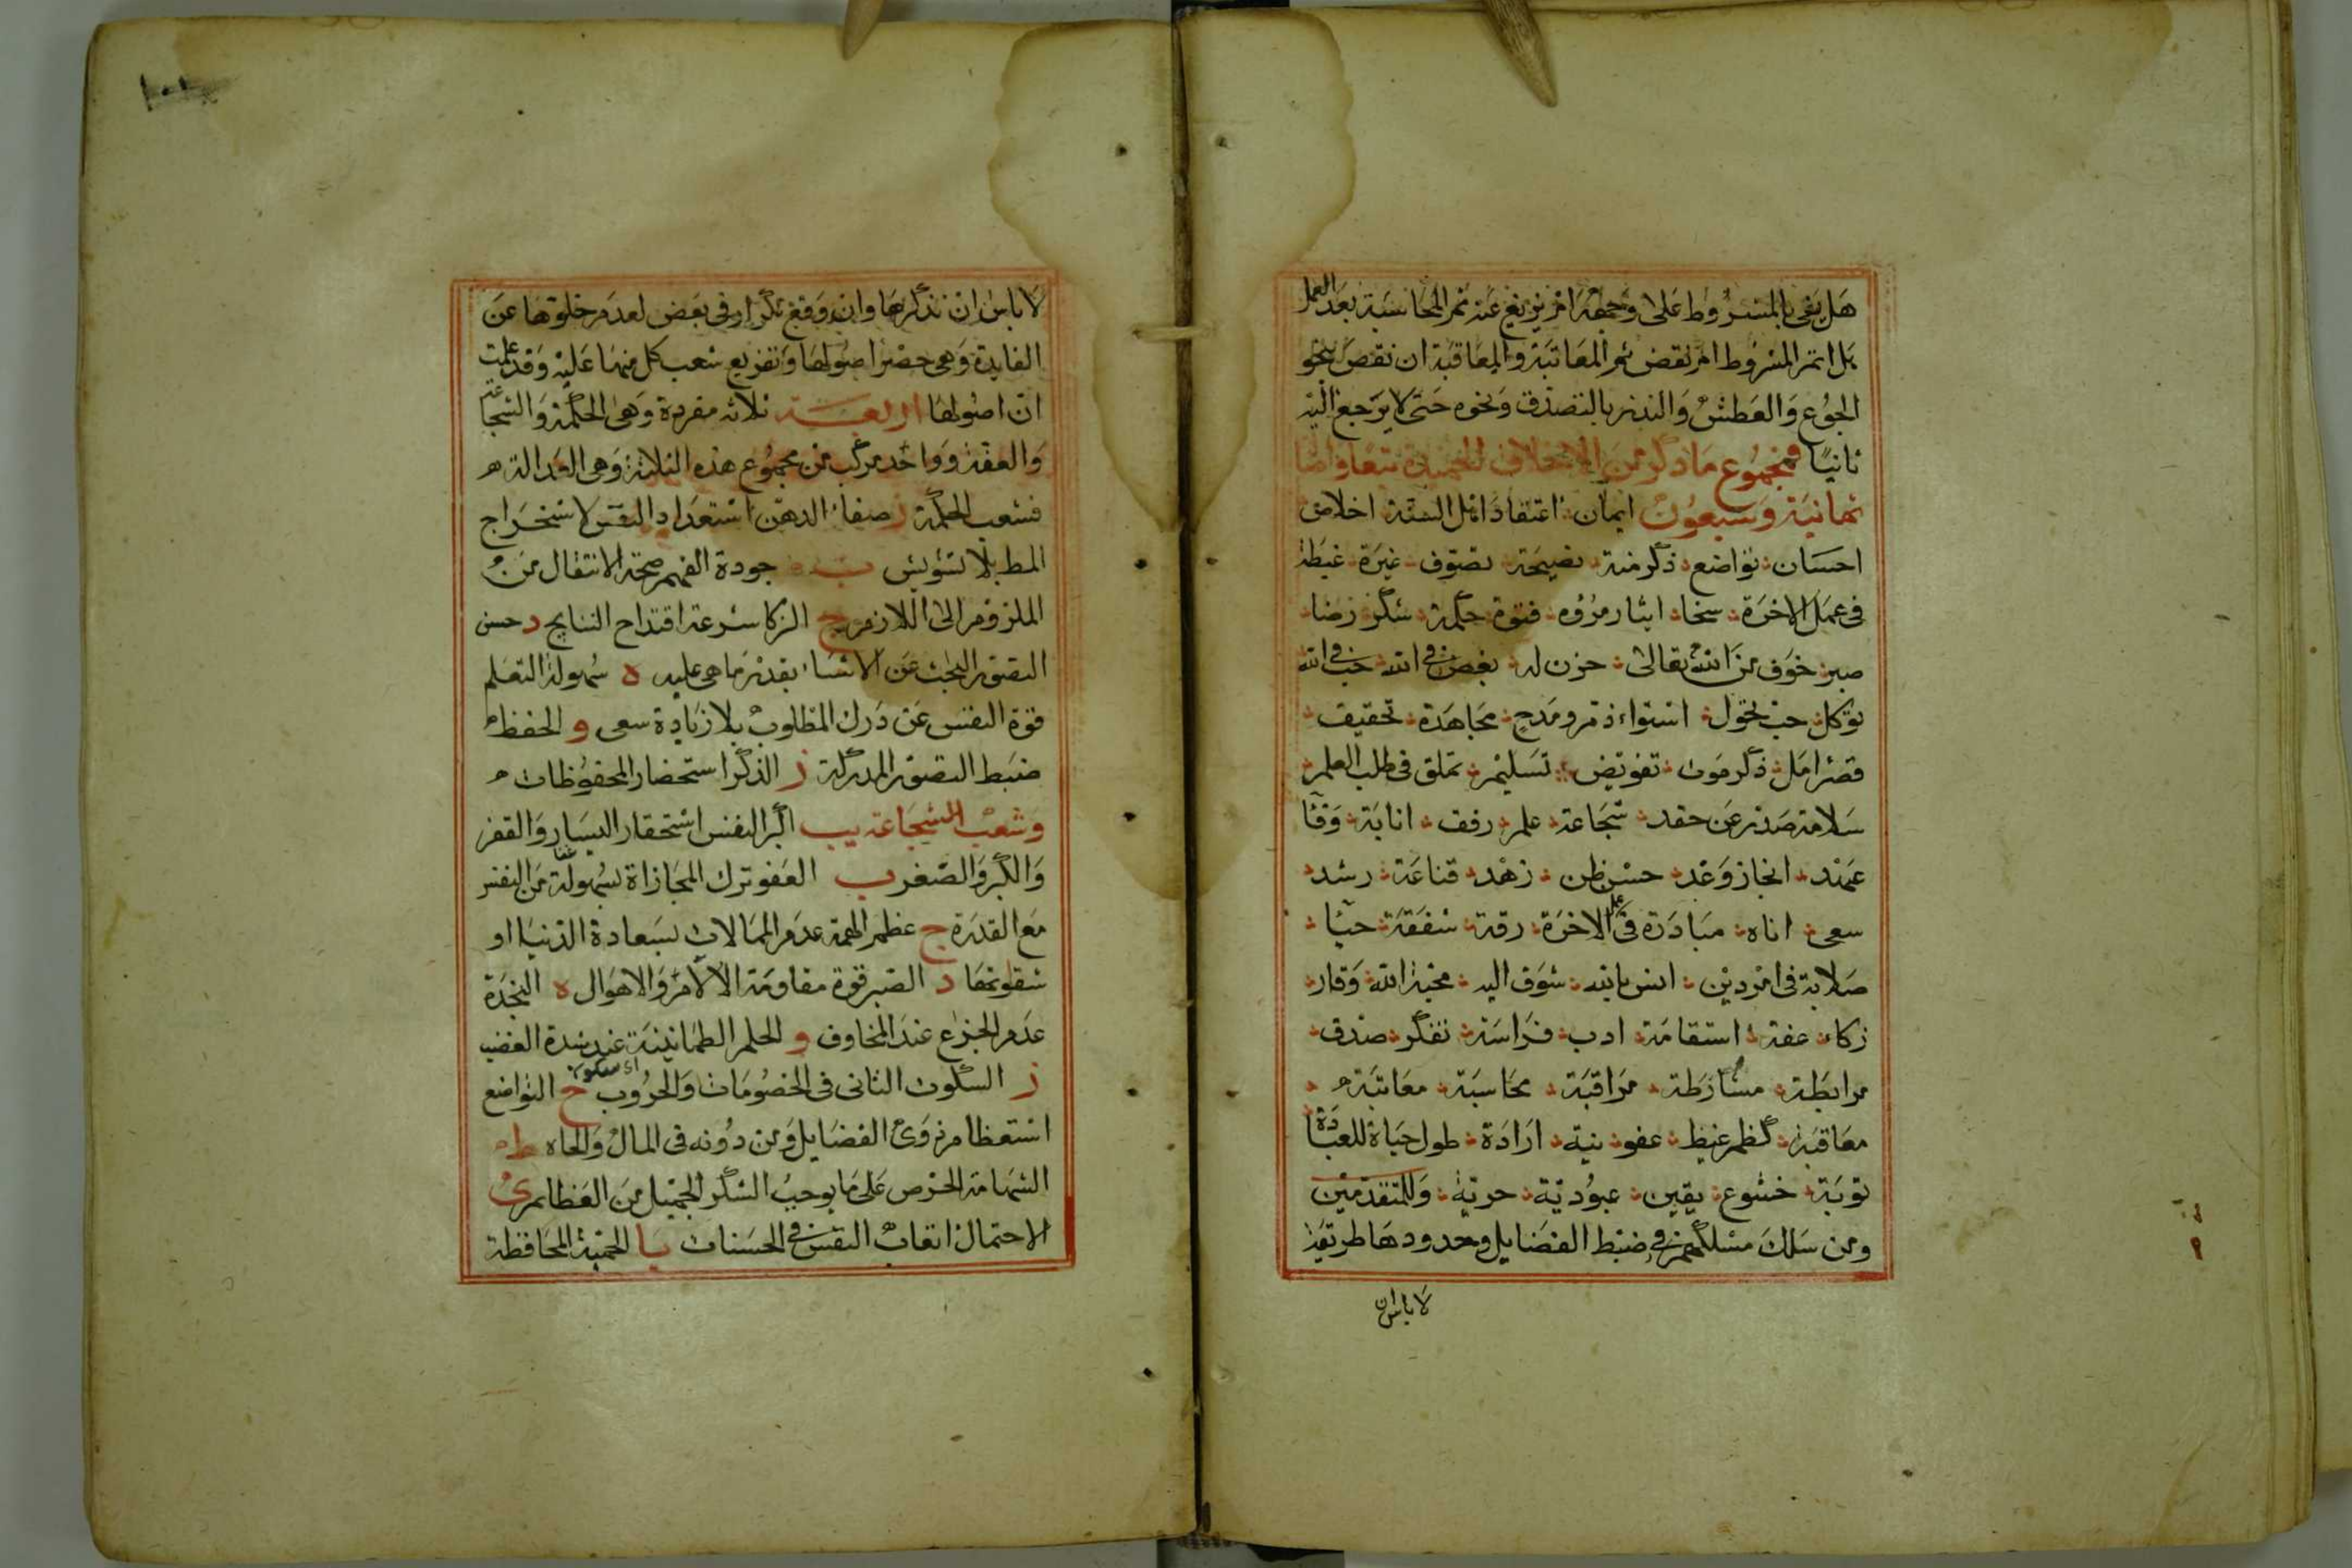 هل يفى بالمشروط على وجهه ام يزيغ عنه ثم المحاسبة بعد العمل
هل اتم المشروط ام نقض ثم المعاتبة والمعاقبة ان نقص بنحو
الجوع والعطش والنذر بالتصدق ونحوه حتى لا يرجع اليه
ثانيا فمجموع ما ذكر من الاخلاق الحميدة
ثمانية وسبعون ايمان اعتقاد اهل السنة اخلاص
احسان تواضع ذكر منة نصيحة تصوف غيرة غبطة
فى عمل الاخرة سخا ايثار مروه فتوة حكمة شكر رضا
صبر خوف من الله تعالى حزن له بغض فى الله حب فى الله
توكل حب خمول استواء ذم ومدح مجاهدة تحقيق
قصر امل ذكر موت تفويض تسليم تملق فى طلب العلم
سلامة صدر عن حقد شجاعة علم رفق انابة وفا
عهد انجاز وعد حسن ظن زهد قناعة رشد
سعى اناه مبادرة فى عمل الاخرة رقة شفقة حيا
صلابة فى امر دين انس بالله شوق اليه محبة الله وقار
زكاء عفة استقامة ادب فراسة تفكر صدق
مرابطة مشارطة مراقبة محاسبة معاتبة
معاقبة كظم غيظ عفو نية ارادة طول حياة للعبادة
توبة خشوع يقين عبودية حرية وللمتقدمين
ومن سلك مسلكهم فى ضبط الفضايل وحدودها طريقة
لا باس ان
١٠١
لا باس ان نذكرها وان وقع تكرار فى بعض لعدم خلوها عن
الفايدة وهى حصر اصولها وتفريع شعب كل منها عليه وقد علمت
ان اصولها اربعة ثلاثه مفردة وهى الحكمة والشجاعة
والعفة وواحد مركب من مجموع هذه الثلاثة وهى العدالة
فشعب الحكمة ز صفاء الذهن استعداد النفس لاستخراج
المط بلا تشويش ب جودة الفهم صحة الانتقال من
الملزوم الى اللازم ج الزكا سرعة اقتداح النتايج د حسن
التصور البحث عن الاشياء بقدر ما هى عليه ه سهولة التعلم
قوة النفس عن درك المطلوب بلا زيادة سعى و الحفظ
ضبط الصور المدركة ز الذكر استحضار المحفوظات
وشعب الشجاعة يب اكبر النفس استحقار اليسار والفقر
والكبر والصغر ب العفو ترك المجازاة بسهولة من النفس
مع القدرة ج عظم الهمة عدم المبالات بسعادة الدنيا او
شقاوتها د الصبر قوة مقاومة الالام والاهوال ه النجدة
عدم الجزع عند المخاوف و الحلم الطمانينة عند شدة الغضب
ز السكون التانى فى الخصومات والحروب ح التواضع
استعظام ذوى الفضايل ومن دونه فى المال والجاه ط
الشهامة الحرص على ما يوجب الشكر الجميل من العظايم ى
الاحتمال اتعاب النفس فى الحسنات يا الحمية المحافظة